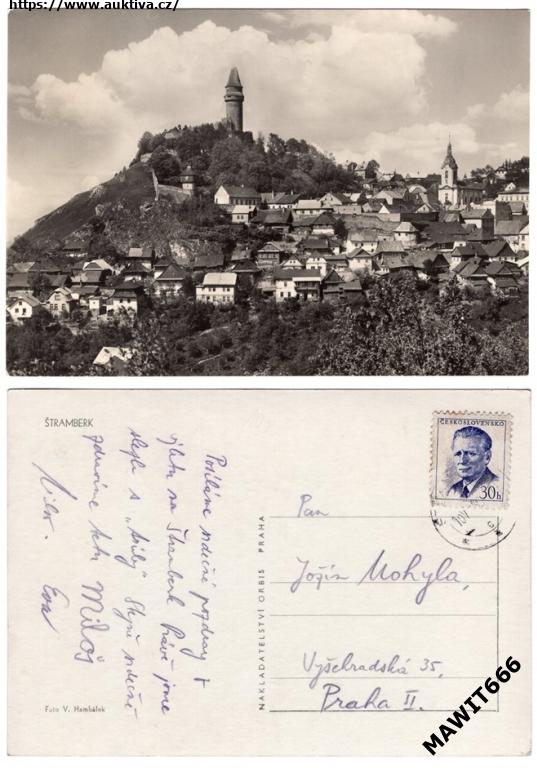 https://www.auktiva.cz/
ŠTRAMBERK
Posíláme srdečné pozdravy z
výletu na Štramberk. Právě jsme
srdečně
zdravíme
Miloš
Eva
Foto V. Hambálek
NAKLADATELSTVÍ ORBIS PRAHA
ČESKOSLOVENSKO
30h
Pan
Jožin Mohyla,
Vyšehradská 35,
Praha II.
MAWIT666